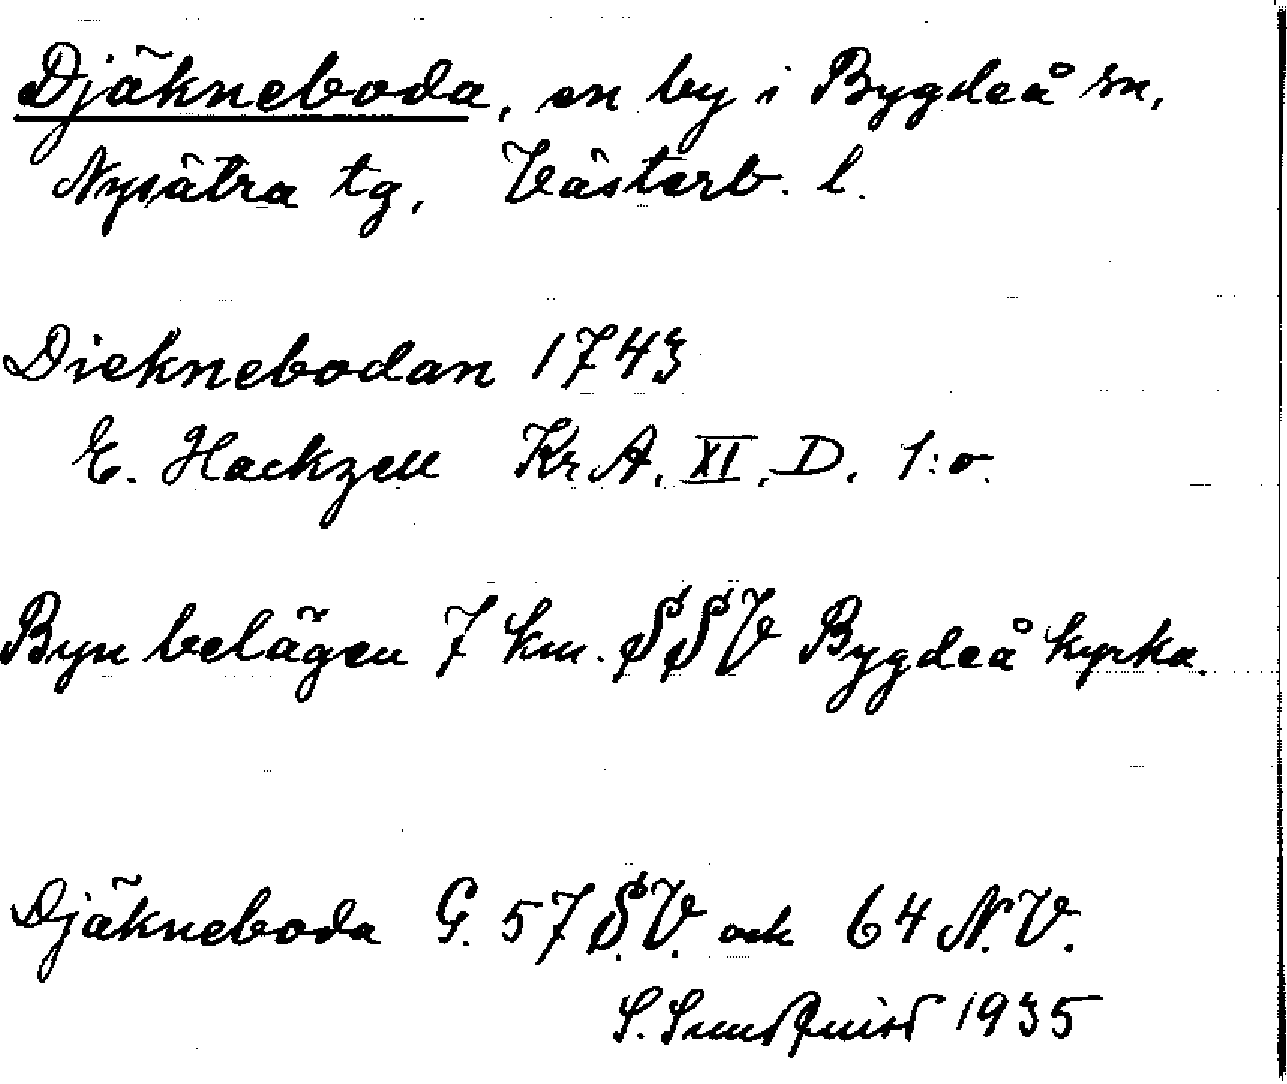 Djäkneboda, en by i Bygdeå sn,
Nysätra tg, Västerb. l.
Dieknebodan 1743
E. Hackzell Kr A. XI, D. 1:o.
Byn belägen 7 km. SSV Bygdeå kyrka.
Djäkneboda G. 57 S.V. och 64 N.V.
S. Sundquist 1935